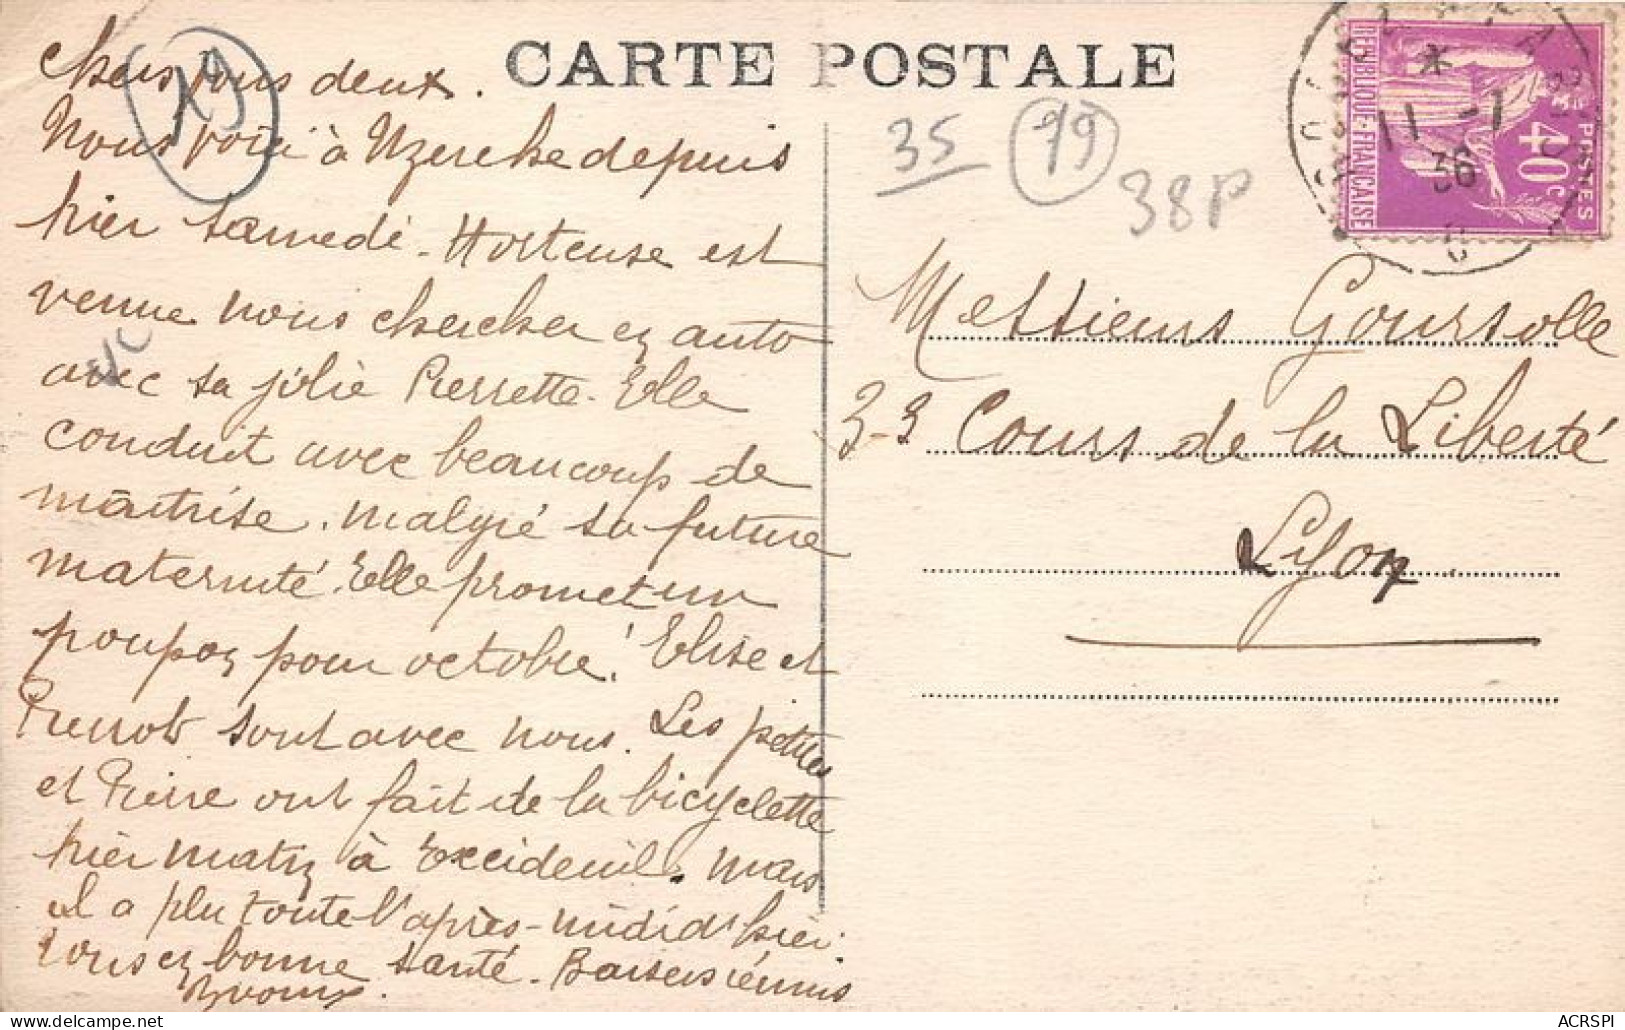 CARTE POSTALE
chers vous deux.
Nous voici à Uzerche depuis
hier samedi - Hortense est
venue nous chercher en auto
avec sa jolie Pierrette - Elle
conduit avec beaucoup de
maîtrise. malgré sa future
maternité. Elle promet un
poupon pour octobre! Elise et
Pierrot sont avec nous. Les petites
et Pierre ont fait de la bicyclette
hier matin à Excideuil. mais
il a plu toute l'après-midi d'hier.
Tous en bonne santé. Baisers réunis
19
35 19
38P
REPUBLIQUE FRANÇAISE
POSTES
40c
11 -1
36
Messieurs Goursolle
3-3 Cours de la Liberté
Lyon
ACRSPI